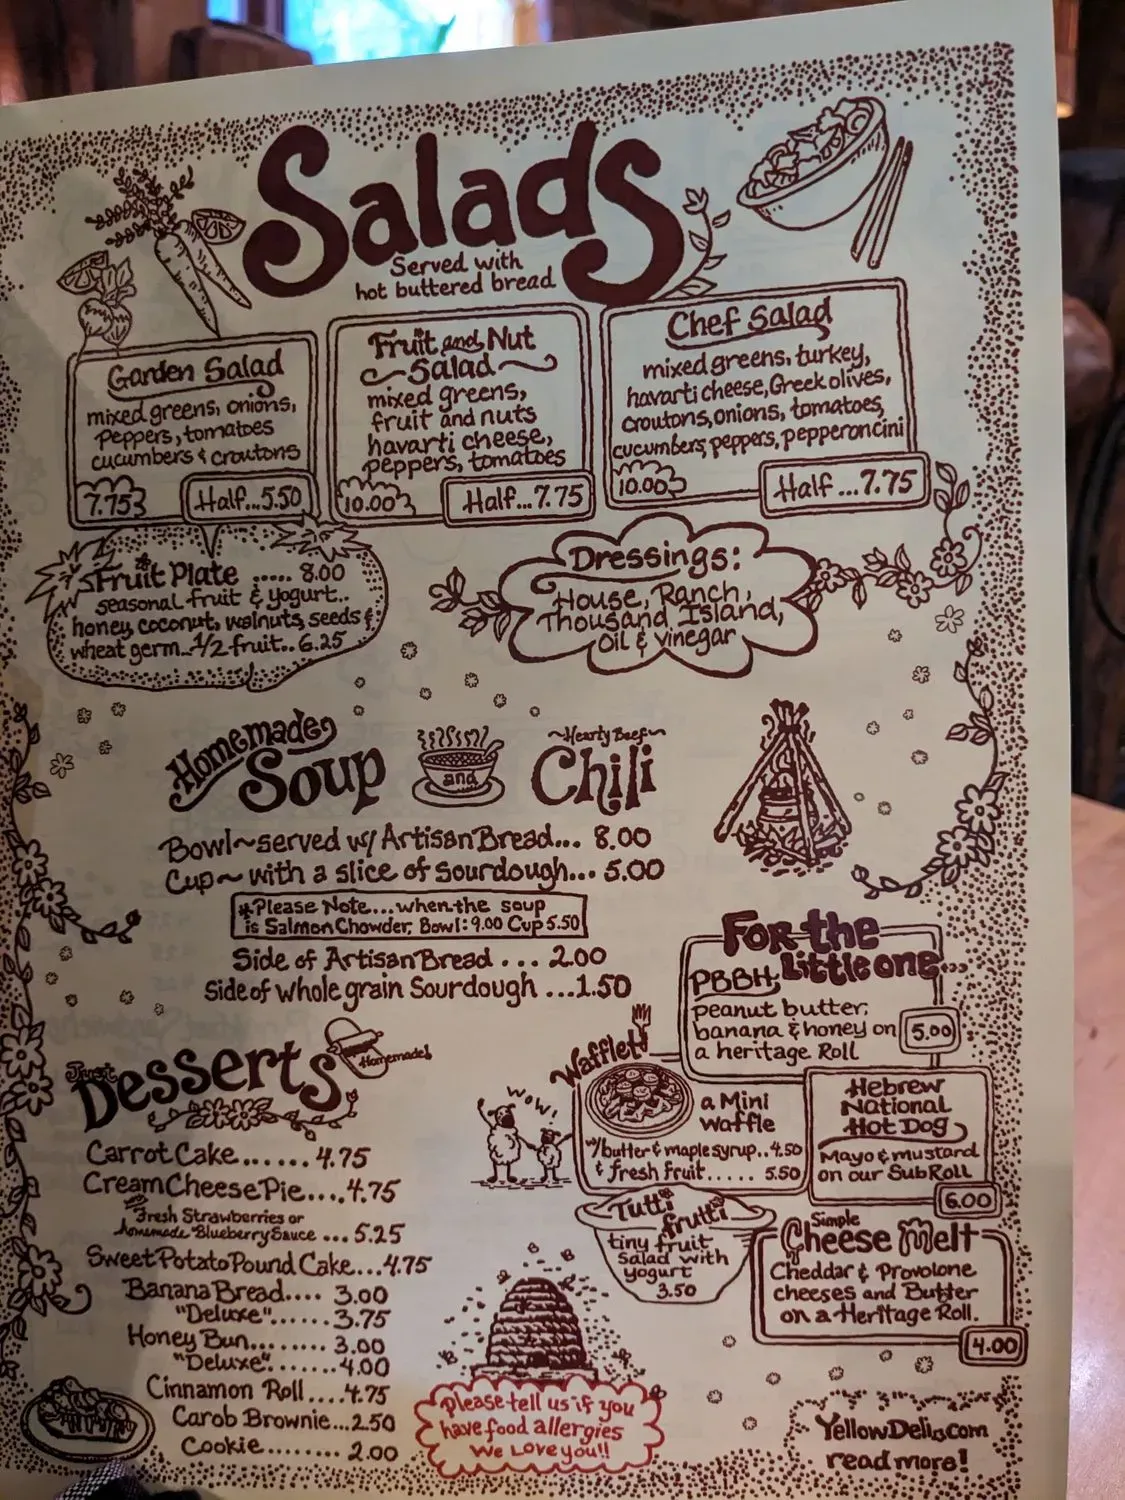 Salads
Served with
hot buttered bread
Garden Salad
mixed greens, onions,
peppers, tomatoes
cucumbers & croutons
7.75
Half...5.50
Fruit and Nut
Salad
mixed greens,
fruit and nuts
havarti cheese,
peppers, tomatoes
10.00
Half...7.75
Chef Salad
mixed greens, turkey,
havarti cheese, Greek olives,
croutons, onions, tomatoes,
cucumbers, peppers, pepperoncini
10.00
Half...7.75
Fruit Plate ..... 8.00
seasonal fruit & yogurt..
honey, coconut, walnuts, seeds &
wheat germ...1/2 fruit.. 6.25
Dressings:
House, Ranch,
Thousand Island,
Oil & Vinegar
Homemade
Soup
and
~Hearty Beef~
Chili
Bowl~served w/ Artisan Bread... 8.00
Cup~ with a slice of Sourdough... 5.00
*Please Note...when the soup
is Salmon Chowder, Bowl: 9.00 Cup 5.50
Side of Artisan Bread ... 2.00
Side of whole grain Sourdough ...1.50
For the
Little one...
PBBH
peanut butter,
banana & honey on
a heritage Roll
5.00
Wafflet
a Mini
waffle
w/butter & maple syrup..4.50
& fresh fruit..... 5.50
Hebrew
National
Hot Dog
Mayo & mustard
on our Sub Roll
6.00
Wow!
Tutti
frutti
tiny fruit
Salad with
yogurt
3.50
Simple
Cheese Melt
Cheddar & Provolone
cheeses and Butter
on a Heritage Roll.
4.00
Just
Desserts
Homemade!
Carrot Cake.......4.75
Cream Cheese Pie....4.75
with
Fresh Strawberries or
homemade Blueberry Sauce ... 5.25
Sweet Potato Pound Cake...4.75
Banana Bread.... 3.00
"Deluxe"...... 3.75
Honey Bun........ 3.00
"Deluxe".......4.00
Cinnamon Roll....4.75
Carob Brownie...2.50
Cookie......... 2.00
Please tell us if you
have food allergies
We Love you!!
YellowDeli.com
read more!